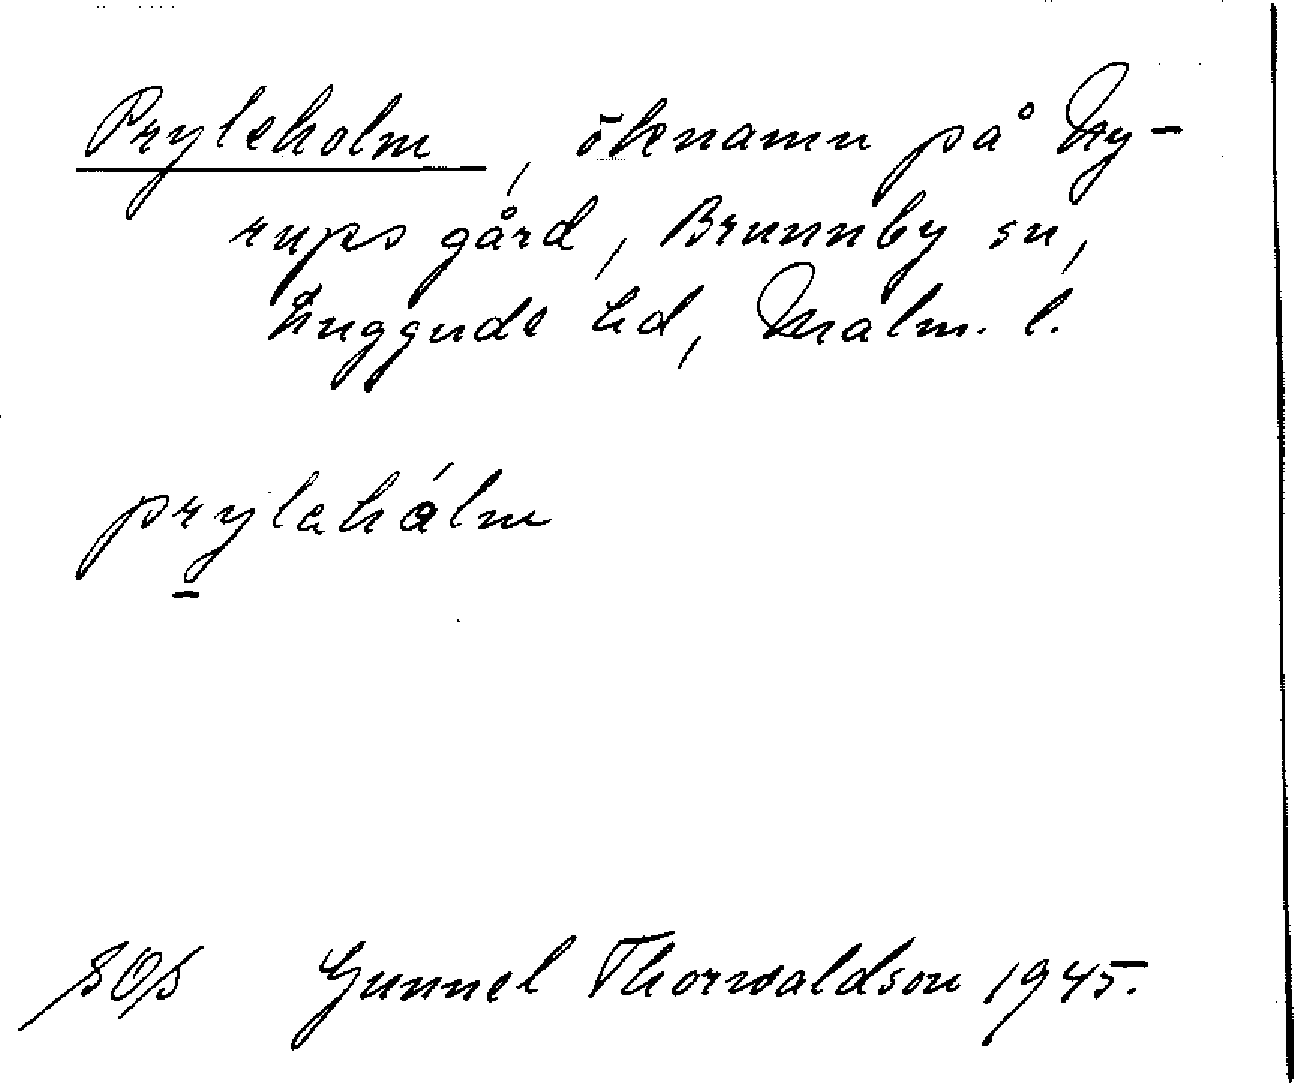 Pryleholm, öknamn på Ny-
rups gård, Brunnby sn,
Luggude hd, Malm. l.
prylahálm
SOS Gunnel Thorwaldson 1945.